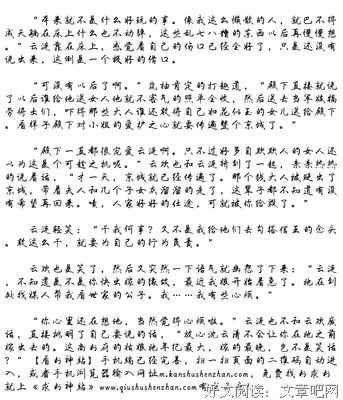 “本来就不是什么好玩的事。像我这么懒散的人，就巴不得
成天躺在床上什么也不动弹，这些乱七八糟的东西以后再慢慢想
。”云浅靠在床上，感觉着自己的伤口已经全好了，只是还没有
说出来，这倒是一个极好的借口。
“可没有以后了啊。”岚袖肯定的打趣道，“殿下直接就说
了以后谁给他送女人他就不客气的照单全收，然后送去当军妓犒
带得士们，吓得那些大人谁还敢将自己如花似玉的女儿送给殿下
。看样子殿下对小姐的爱护之心就要传遍整个京城了。”
“殿下一直都很宠爱云浅啊。只不过好多自欺欺人的女人还
以为这是个可趁之机呢。”云欢也和云浅挤到了一起，亲亲热热
的说着话，“才一天，京城就已经传遍了。那个钱大人被贬出了
京城，带着夫人和几个子女灰溜溜的走了，这辈子都不知道有没
有希望再回来。啧，人家好好的仕途，可就被你给毁了。”
云浅轻笑：“干我何事？又不是我给他们去勾搭信王的念头
。敢这么干，就要为自己的行为负责。”
云欢也是笑了，然后又突然一下语气就幽怨了下来：“云浅
，不知道是不是你快出嫁的缘故，最近我娘开始着急了。她在到
处找媒人帮我看世家的公子。我……我有些心烦。”
“你心里还在想他，当然觉得心烦啦。”云浅也不和云欢废
话，直接挑明了自己要说的话，“放心沈云清不会让你在她之前
嫁出去的。这南书府的姑娘她年纪最大，嫁的最晚，岂不是笑话
？”【看书神站】手机端已经完善，扫一扫页面的二维码自动进
入，或者手机浏览器输入网址m.kanshushenzhan.com，免费找书求书
就上《求书神站》www.qiushushenzhan.com
好文阅读：文章吧网